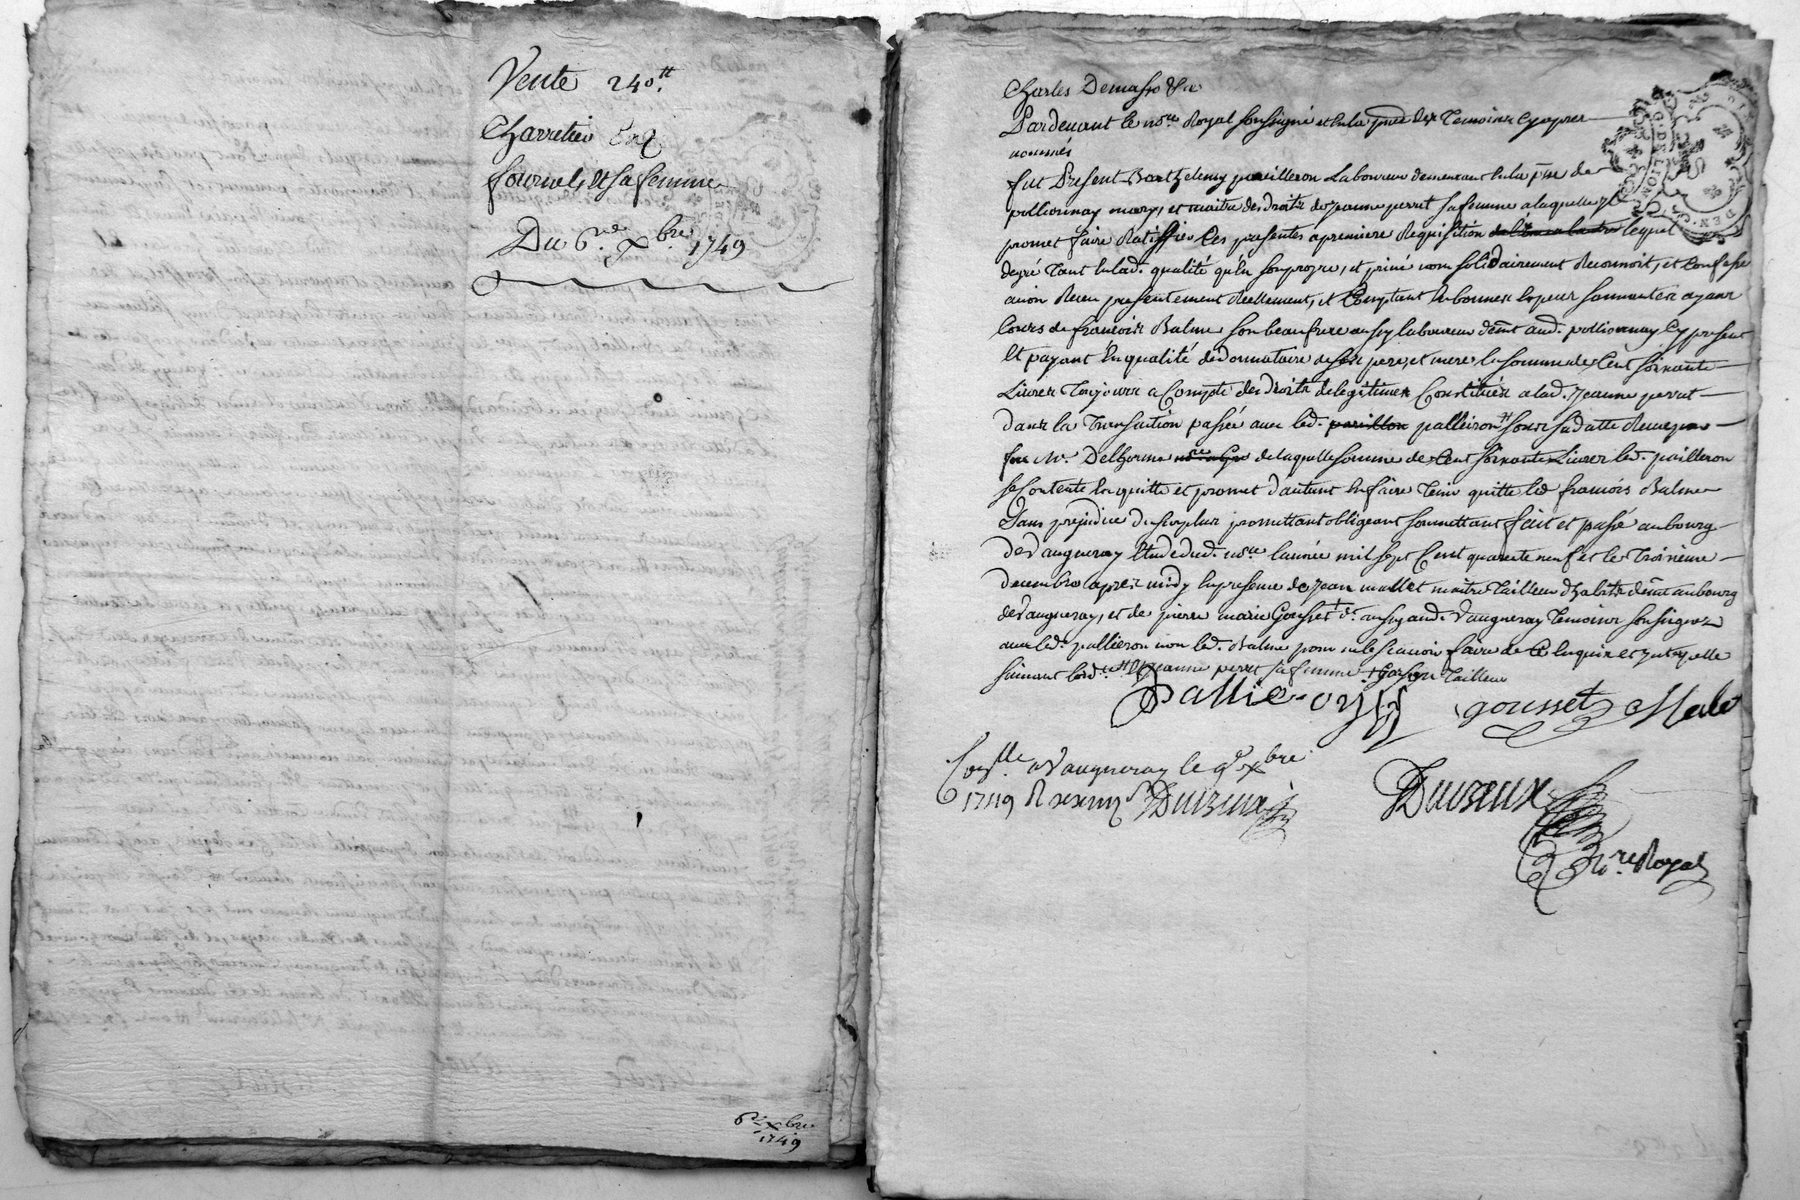 Vente 240.tt
Charretier
fournel, et sa femme
Du 6.me xbre 1749
6e xbre
1749
Charles Demasso &a
Pardevant le no.re Royal soussigné et en la pnce des Temoins cy apres
nommés
fut Present Barthelemy pailleron Laboureur demeurant en la p.sse de
pollionnay mary, et maitre des droits de jeanne perrut sa femme a laquelle il
promet faire Ratiffier Ces presentes a premiere Requisition lequel
degré tant en lad. qualité qu'en son propre, et privé nom solidairement Reconnoit, et Confesse
avoir Receu presentement Reellement, et Comptant en bonnes especes sonnantes ayant
Cours de francois Balme son beau frere aussy laboureur demt aud. pollionnay Cy present
Et payant en qualité de donnataire de ses pere, et mere la somme de Cent soixante
Livres Toujours a Compte des droits de legitimes Constitués a lad. jeanne perrut
dans la Transaction passée avec led. pareillon palleiron sous sa datte Receue
Me. Delhorme de laquelle somme de Cent soixante Livres led. pailleron
se Contente en quitte et promet d'autant en faire Tenir quitte led francois Balme
sans prejudice du surplus promettant obligeant soumettant fait et passé au bourg
de Vaugneray Etude dud. no.re l'année mil sept Cent quarente neuf et le Troisieme
decembre apres midy en presence de jean mallet maitre Tailleur d'habits demt au bourg
de Vaugneray, et de pierre marie Gousset + dt. aussy aud. Vaugneray Temoins soussignez
avec led. pallieron non led. Balme pour ne le scavoir faire de Ce enquis et interpellé
suivant l'ord.ce tt et jeanne perrut sa femme + garson Tailleur
Pallieron gousset Merle
Con.lle a Vaugneray le 9e xbre
1749 R Duvreux Duvreux
N.re Royal